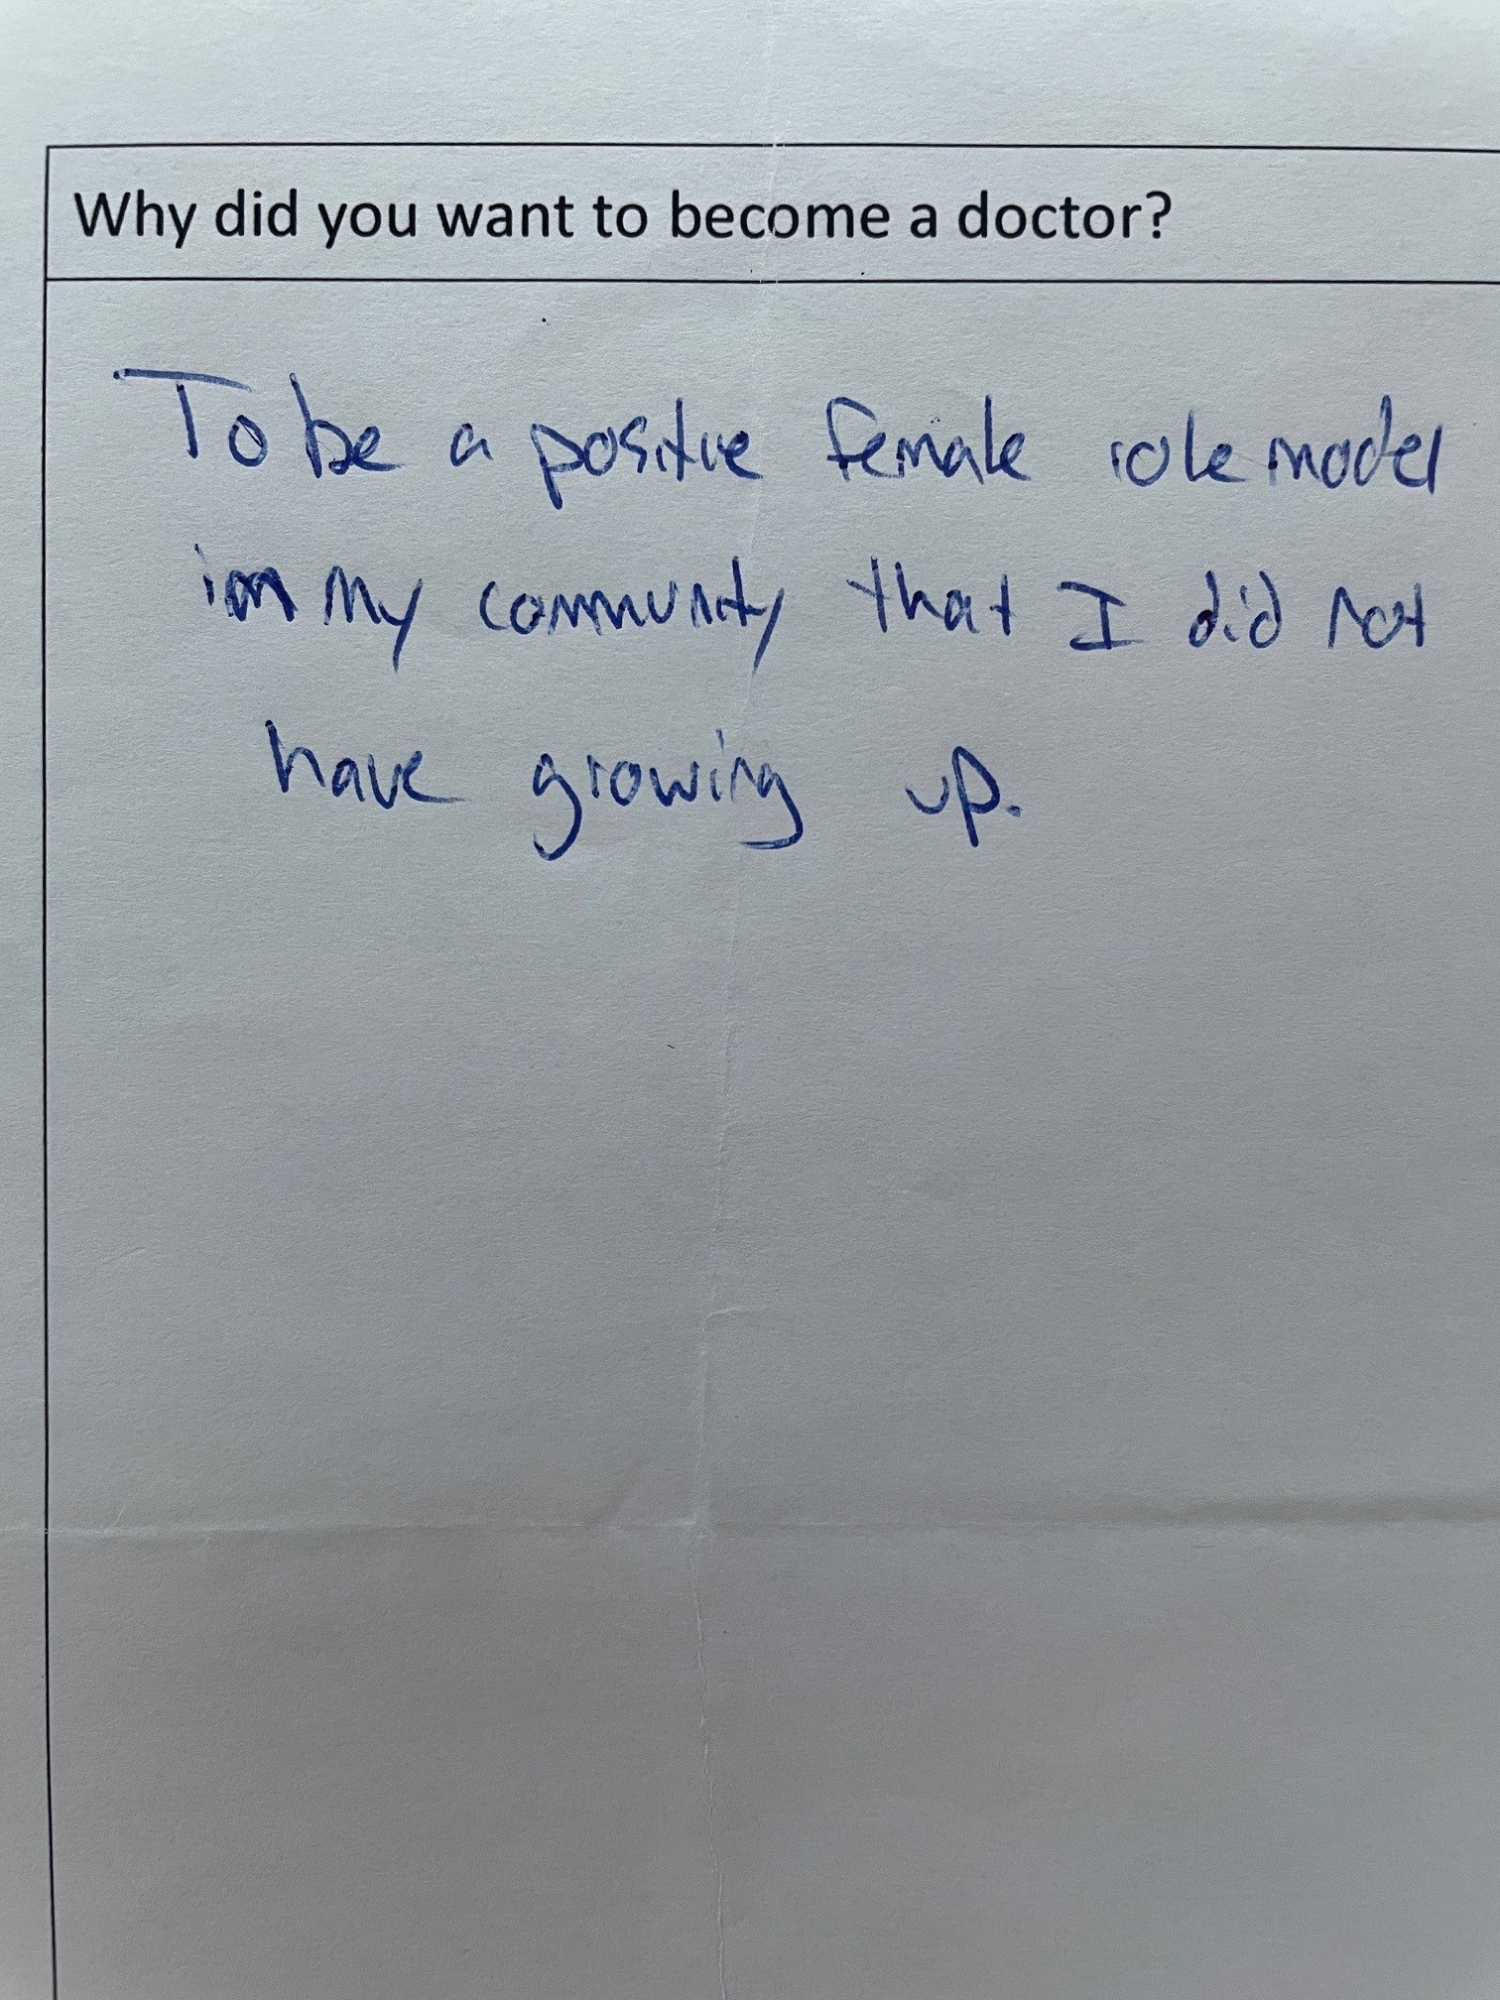 Why did you want to become a doctor?
To be a positive female role model
in my community that I did not
have growing up.